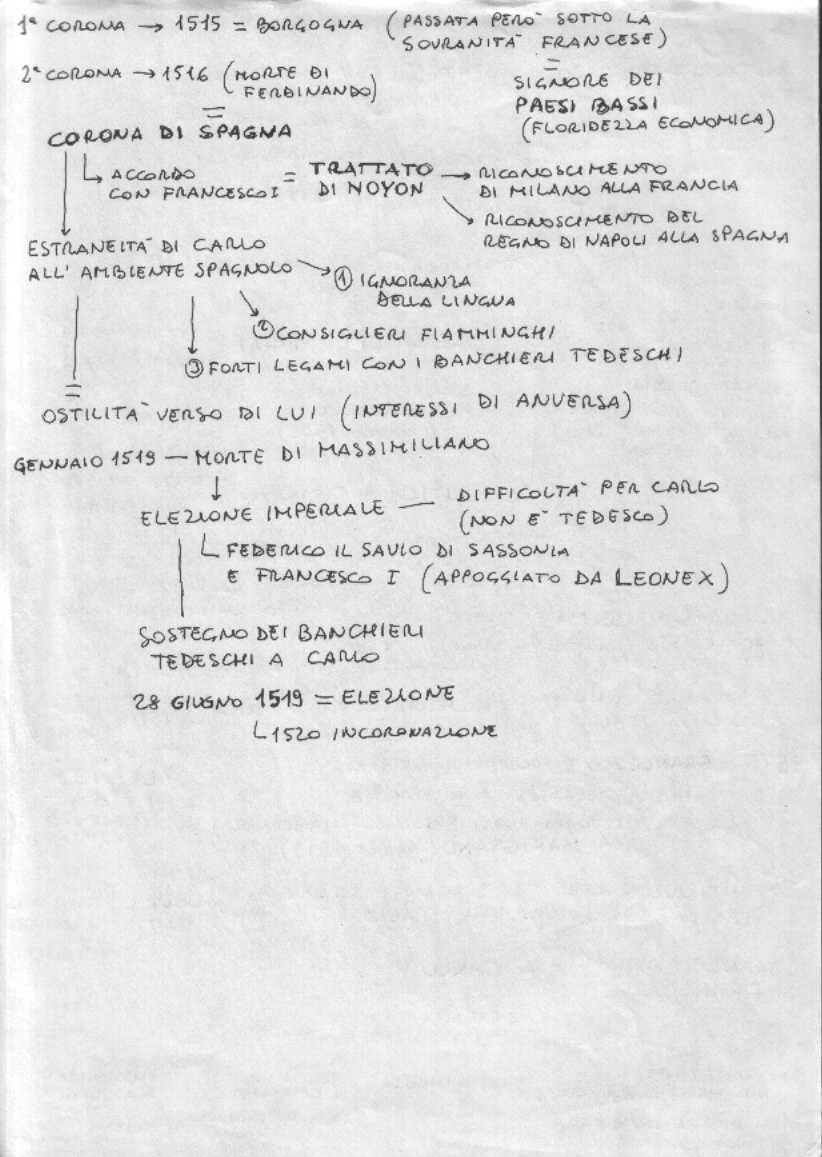 1ª CORONA → 1515 = BORGOGNA (PASSATA PERO' SOTTO LA
SOVRANITA' FRANCESE)
=
SIGNORE DEI
PAESI BASSI
(FLORIDEZZA ECONOMICA)
2ª CORONA → 1516 (MORTE DI
FERDINANDO)
=
CORONA DI SPAGNA
ACCORDO
CON FRANCESCO I = TRATTATO
DI NOYON → RICONOSCIMENTO
DI MILANO ALLA FRANCIA
RICONOSCIMENTO DEL
REGNO DI NAPOLI ALLA SPAGNA
ESTRANEITA' DI CARLO
ALL'AMBIENTE SPAGNOLO → ① IGNORANZA
DELLA LINGUA
② CONSIGLIERI FIAMMINGHI
③ FORTI LEGAMI CON I BANCHIERI TEDESCHI
=
OSTILITA' VERSO DI LUI (INTERESSI DI ANVERSA)
GENNAIO 1519 — MORTE DI MASSIMILIANO
↓
ELEZIONE IMPERIALE — DIFFICOLTA' PER CARLO
(NON E' TEDESCO)
FEDERICO IL SAVIO DI SASSONIA
E FRANCESCO I (APPOGGIATO DA LEONE X)
SOSTEGNO DEI BANCHIERI
TEDESCHI A CARLO
28 GIUGNO 1519 = ELEZIONE
1520 INCORONAZIONE